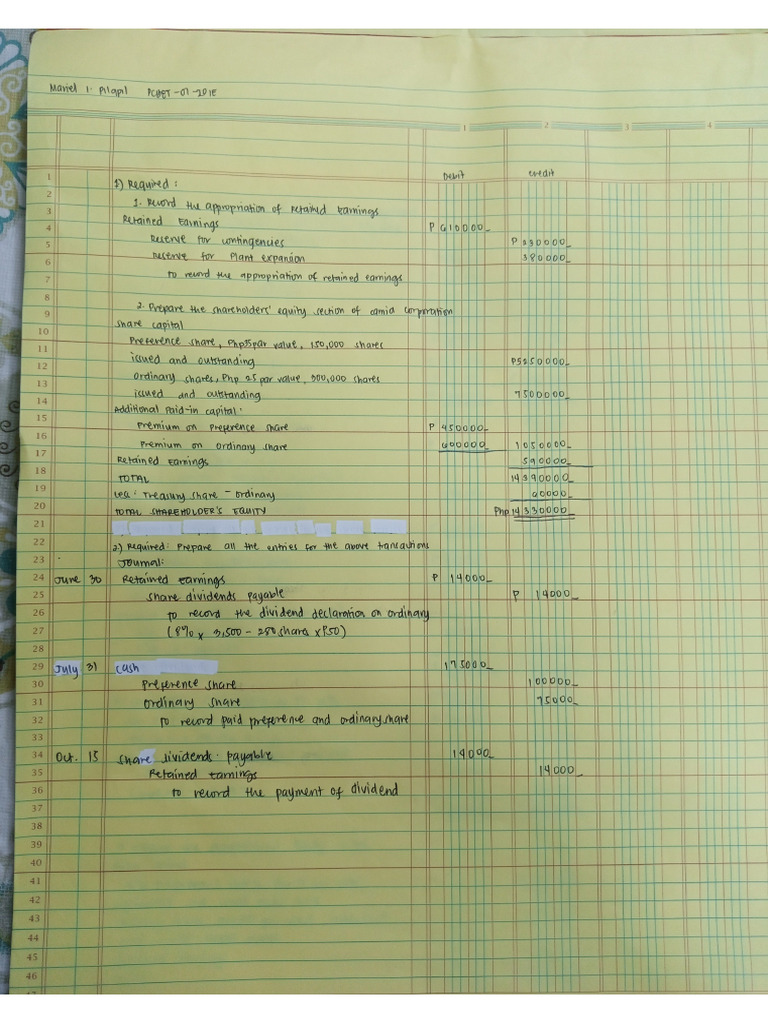 Mariel I. Pilapil PCBET-01-201E
1 2 3 4
Debit credit
1 1) Required:
2
3 1. Record the appropriation of retained earnings
4 Retained Earnings P 610000_
5 Reserve for contingencies P 230000_
6 Reserve for Plant expansion 380000_
7 to record the appropriation of retained earnings
8
9 2. Prepare the shareholders' equity section of camia corporation
10 share capital
11 Preference share, Php35par value, 150,000 shares
12 issued and outstanding P5250000_
13 ordinary shares, Php 25 par value, 300,000 shares
14 issued and outstanding 7500000_
15 Additional Paid-in capital:
16 Premium on Preference share P 450000_
17 Premium on ordinary share 600000_ 1050000_
18 Retained Earnings 590000_
19 TOTAL 14390000_
20 Less: Treasury share - ordinary 60000_
21 TOTAL SHAREHOLDER'S EQUITY Php 14330000_
22
23 2) Required: Prepare all the entries for the above transactions
Journal:
24 June 30 Retained earnings P 14000_
25 share dividends payable P 14000_
26 to record the dividend declaration on ordinary
27 (8% x 3,500 - 280 shares x P50)
28
29 July 31 cash 175000_
30 Preference share 100000_
31 ordinary share 75000_
32 to record paid preference and ordinary share
33
34 Oct. 15 share dividends payable 14000_
35 Retained earnings 14000_
36 to record the payment of dividend
37
38
39
40
41
42
43
44
45
46